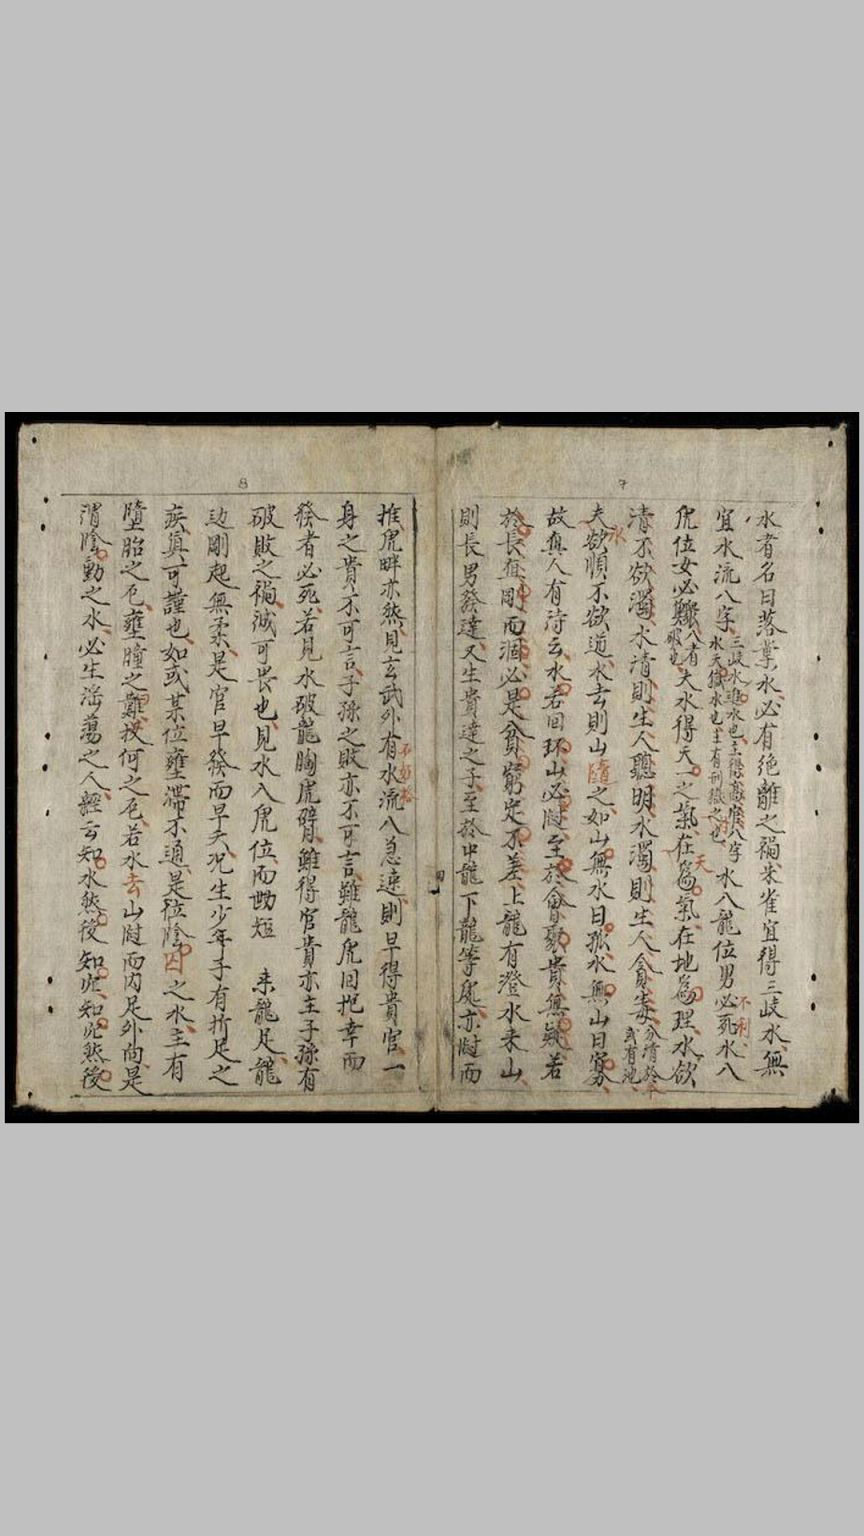 7
水者名曰落葉水必有絶離之禍朱雀宜得三岐水無
宜水流八字三岐水進水也主得高官八字水天獄水也主有刑獄之也水入龍位男必死不利水八
虎位女必難八者眼也夫水得天一之氣在天為氣在地為理水欲
清不欲濁水清則生人聰明水濁則生人貪毒
夫水欲順不欲逆水去則山隨之如山無水曰孤水無山曰寡
故真人有詩云水若回环山必隨至於會聚貴無疑若
於長直剛而涸必是貧窮定不差上龍有澄水来山
則長男發達又生貴達之子至於中龍下龍等處亦隨而
8
推虎畔亦然見玄武外有水流不如不八急速則早得貴官一
身之貴不可言子孫之敗亦不可言雖龍虎回抱幸而
發者必死若見水破龍胸虎臂雖得官貴亦主子孫有
破敗之禍誠可畏也見水入虎位而坳短 来龍足龍
边剛起無柔是官早發而早夭况生少年子有折足之
疾真可謹也如或某位壅滯不通是位陰囚之水主有
墮胎之厄壅腫之難投何之厄若水去山隨而内足外向是
謂陰動之水必生淫蕩之人經云知水然後知穴知穴然後